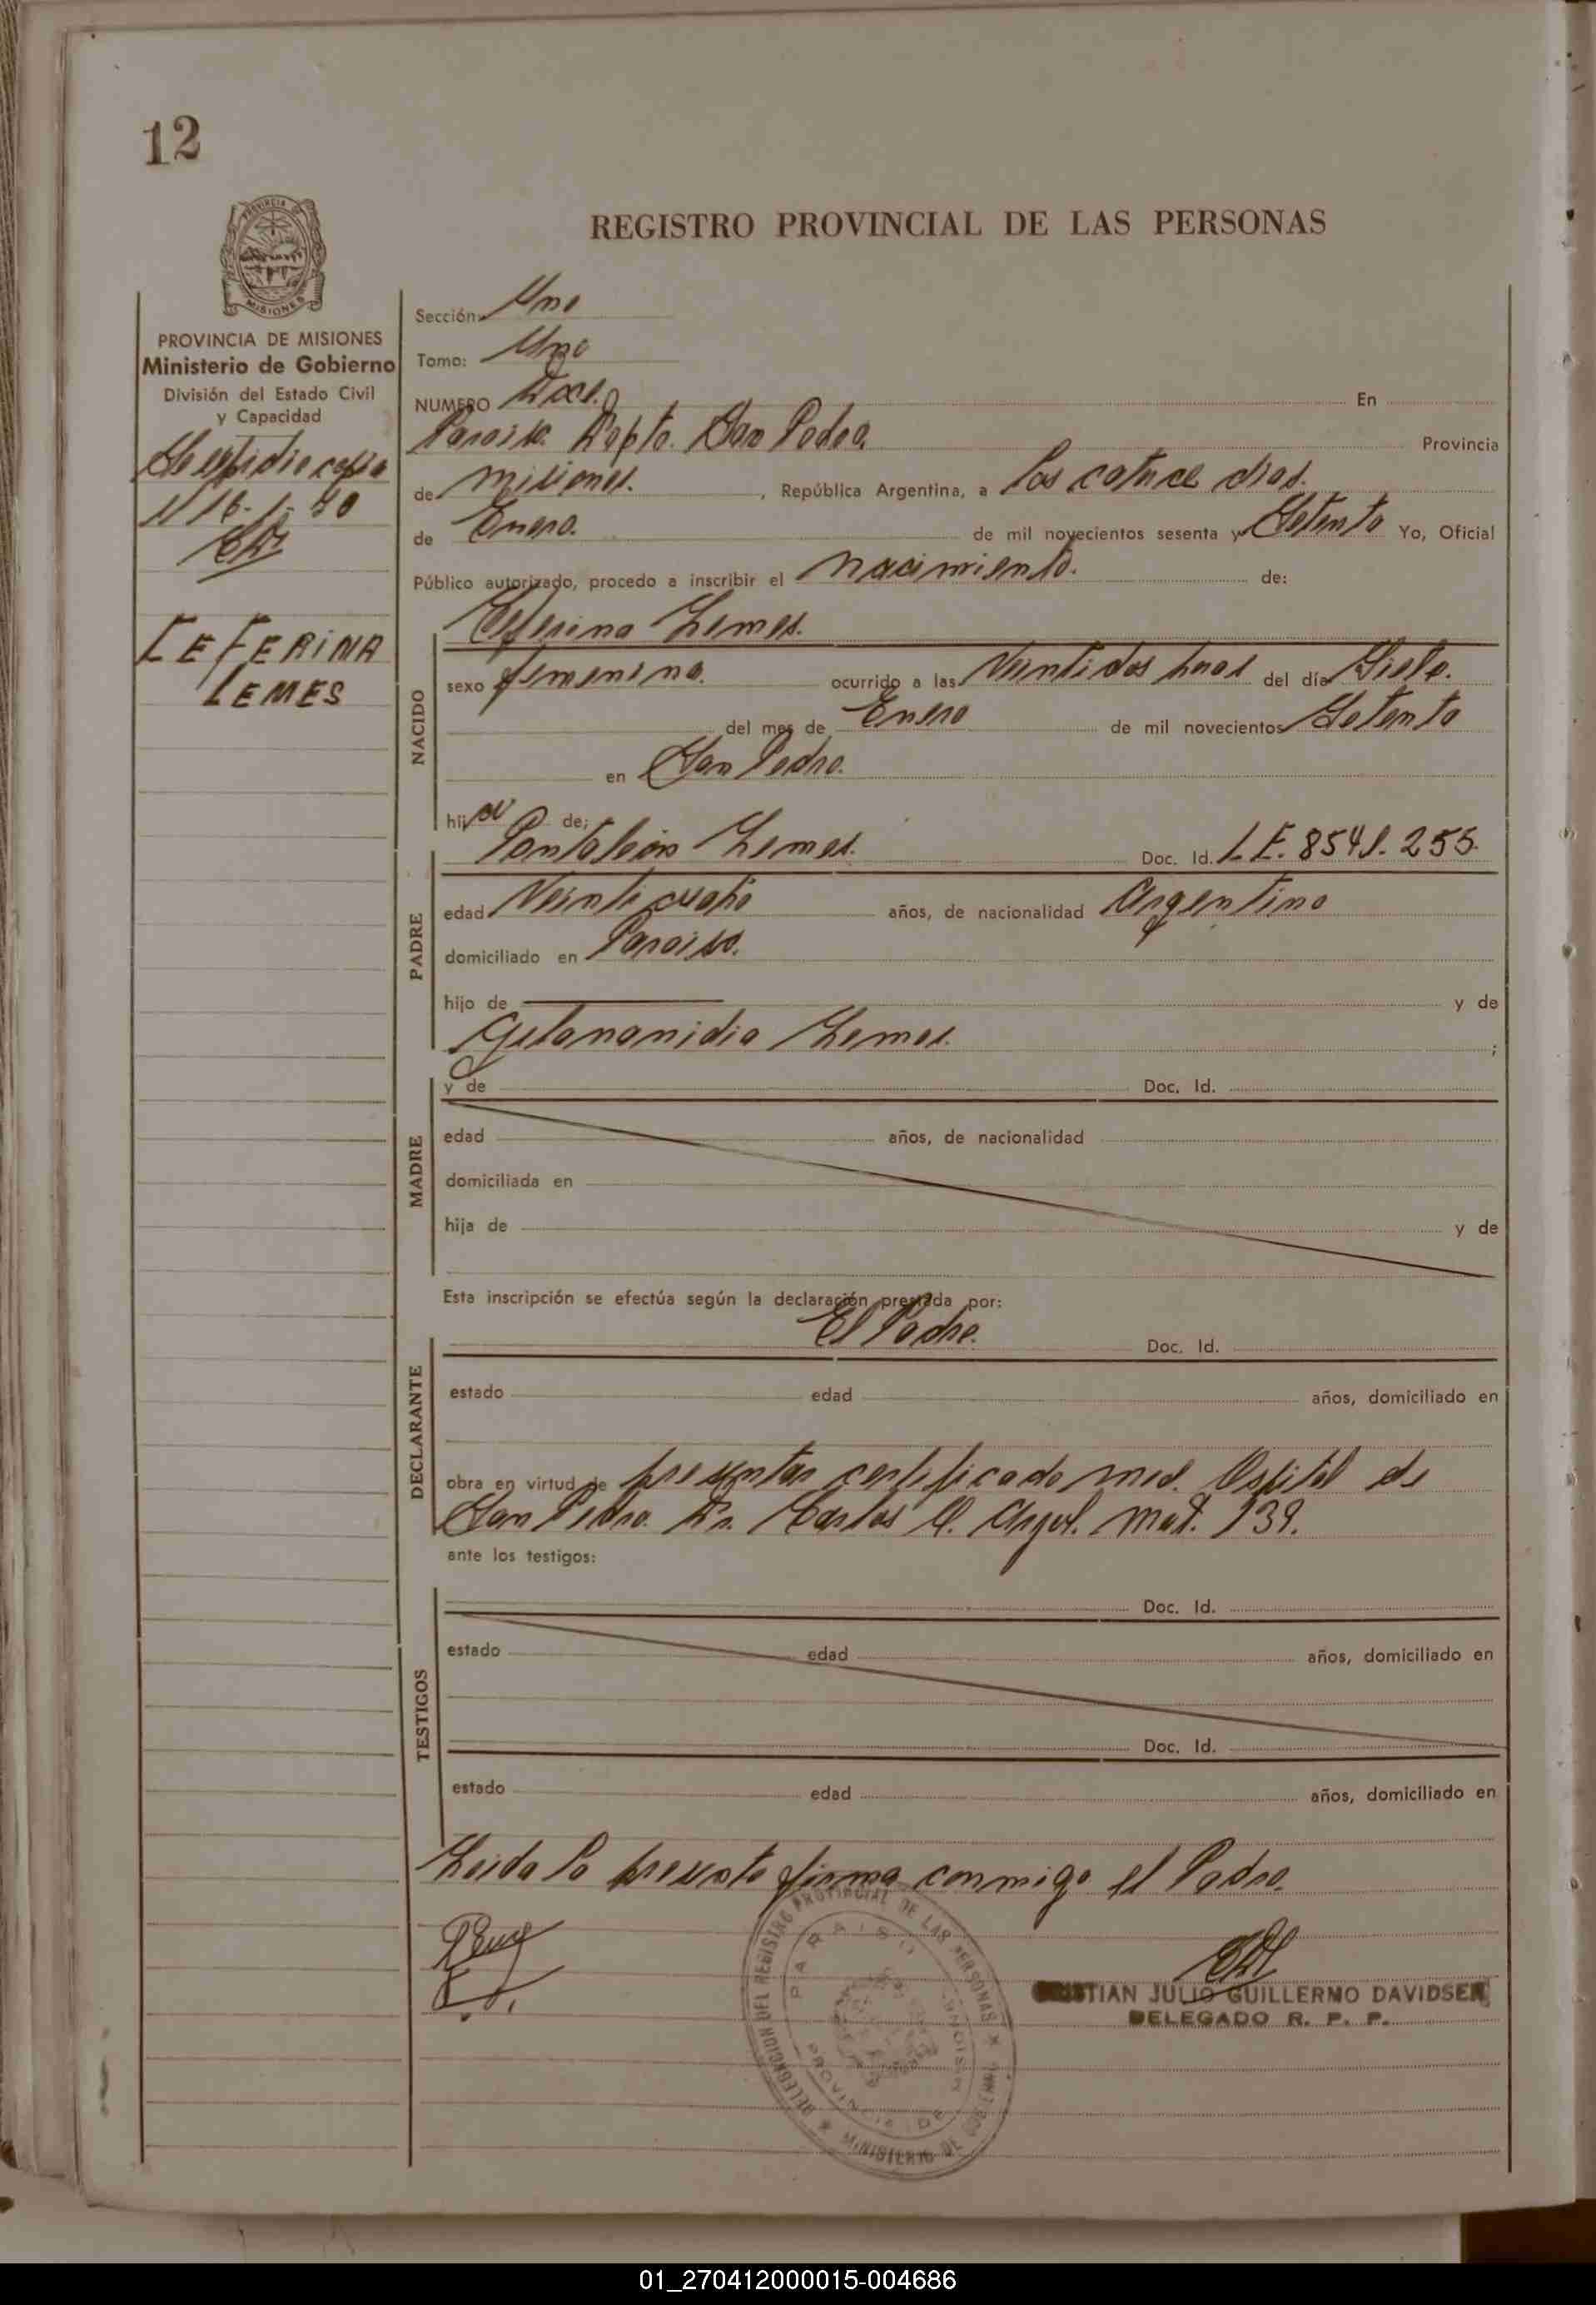 12
REGISTRO PROVINCIAL DE LAS PERSONAS
PROVINCIA DE MISIONES
PROVINCIA DE MISIONES
Ministerio de Gobierno
División del Estado Civil
y Capacidad
Se expidio copia
CEFERINA
LEMES
Sección: Uno
Tomo: Uno
NUMERO Doce. En
Paraiso. Depto. San Pedro. Provincia
de Misiones. , República Argentina, a los catorce dias.
de Enero. de mil novecientos sesenta y Setenta Yo, Oficial
Público autorizado, procedo a inscribir el nacimiento. de:
NACIDO
Ceferina Lemes.
sexo femenino. ocurrido a las Veintidos horas del día Siete.
del mes de Enero de mil novecientos Setenta
en San Pedro.
hija de;
PADRE
Pantaleón Lemes. Doc. Id. L.E. 8541.255.
edad Veinticuatro años, de nacionalidad Argentino
domiciliado en Paraiso.
hijo de y de
Lemes. ;
MADRE
y de Doc. Id.
edad años, de nacionalidad
domiciliada en
hija de y de
Esta inscripción se efectúa según la declaración prestada por:
DECLARANTE
El Padre. Doc. Id.
estado edad años, domiciliado en
obra en virtud de presentar certificado med. Ospital de
San Pedro. Dr. Carlos Mat. 139.
ante los testigos:
TESTIGOS
Doc. Id.
estado edad años, domiciliado en
Doc. Id.
estado edad años, domiciliado en
Leida la presente firma conmigo el Padre.
DELEGACION DEL REGISTRO PROVINCIAL DE LAS PERSONAS * MINISTERIO DE GOBIERNO *
PARAISO
PROVINCIA DE MISIONES
JULIO GUILLERMO DAVIDSEN
DELEGADO R. P. P.
01_270412000015-004686